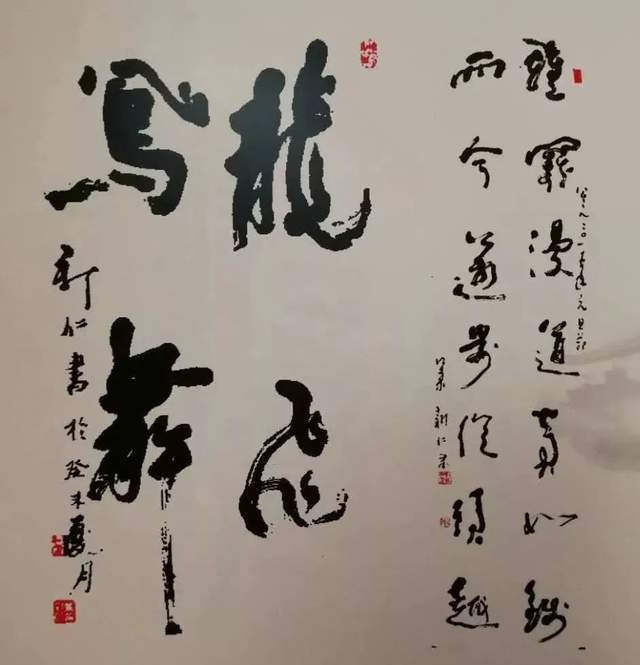 雄關漫道真如鐵
而今邁步從頭越
龍飛
鳳舞
新仁書於癸未夏月